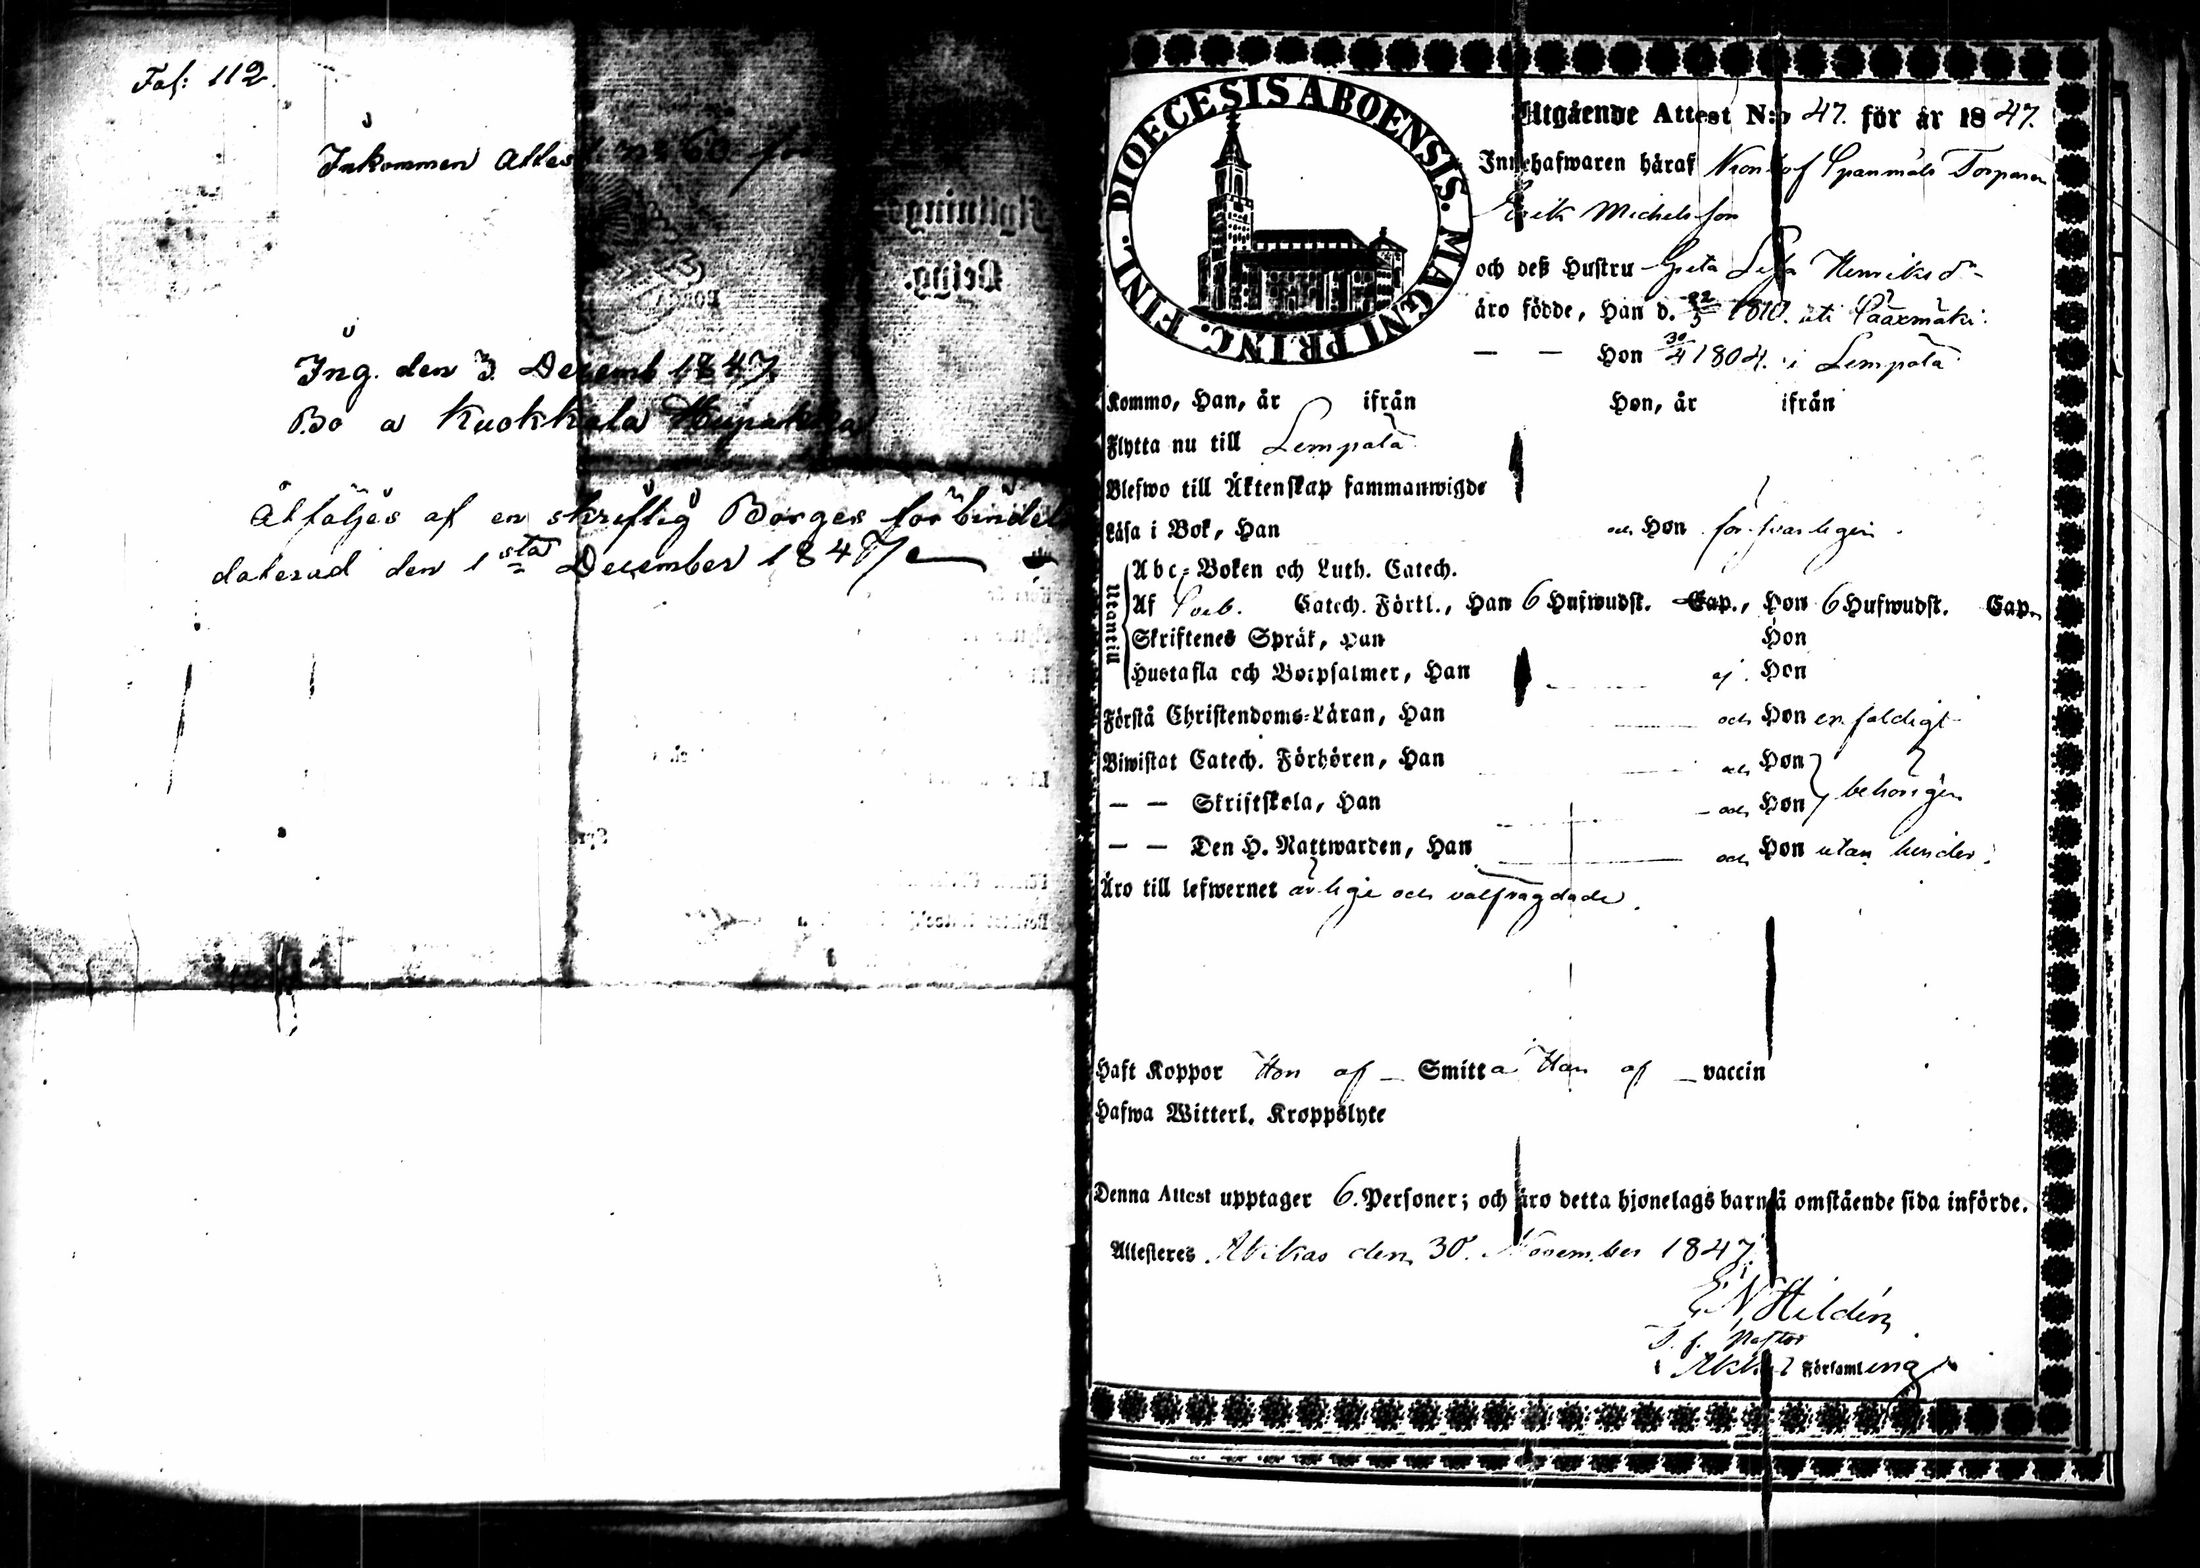 Fol: 112.
Inkommen Attest N:o 60 för
Ing. den 3 Decemb 1847
Bo a Kuokkala
Åtföljes af en skriftlig Borges förbindel
daterad den 1sta December 1847
Flyttnings-
Betyg.
DIOECESIS ABOENSIS. MAGNI PRINC. FINL.
Utgående Attest N:o 47. för år 1847.
Innehafwaren häraf Torparen
Erik Michelsson
och deß Hustru Greta Lisa Henriksdr
äro födde, Han d. 22/5 1810. uti Sääxmäki.
— — Hon 30/4 1804. i Lempälä
Kommo, Han, år ifrån Hon, år ifrån
Flytta nu till Lempälä
Blefwo till Äktenskap sammanwigde
Läsa i Bok, Han och Hon försvarligen.
Utantill
Abc-Boken och Luth. Catech.
Af Sveb. Catech. Förkl., Han 6 Hufwudst. Cap., Hon 6 Hufwudst. Cap.
Skriftenes Språk, Han Hon
Hustafla och Botpsalmer, Han ej. Hon
Förstå Christendoms-Läran, Han och Hon enfaldigt
Biwistat Catech. Förhören, Han och Hon
— — Skriftskola, Han och Hon behörigen
— — Den H. Nattwarden, Han och Hon utan hinder.
Äro till lefwernet ärlige och välfrägdade.
Haft Koppor Hon af — Smitta Han af — vaccin
Hafwa Witterl. Kroppslyte
Denna Attest upptager 6. Personer; och äro detta hjonelags barn å omstående sida införde.
Attesteres Akkas den 30. November 1847.
E N Hildén
T. f. Pastor
i Akkas Församling